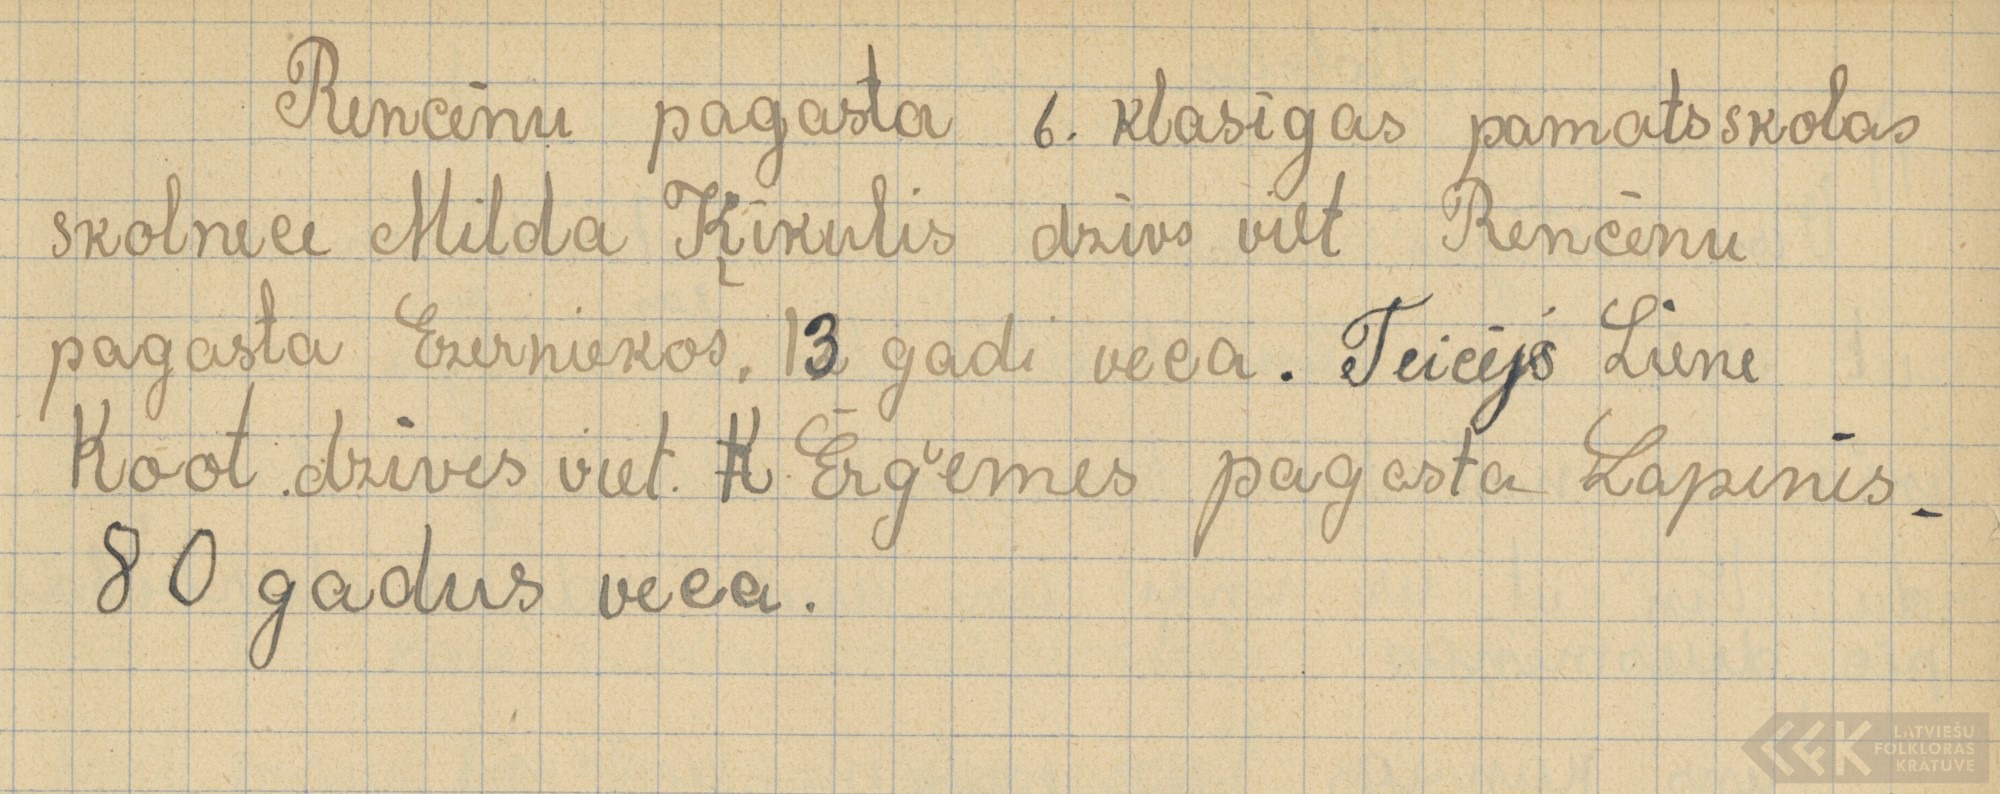 Rencēnu pagasta 6. klasīgas pamatsskolas
skolniece Milda Ķīkulis dzīvs viet Rencēnu
pagasta Ezerniekos, 13 gadi veca. Teicējs Liene
Koot dzīves viet. K Ērģemes pagasta Lapiņis_
80 gadus veca.
LATVIEŠU
FOLKLORAS
KRATUVE